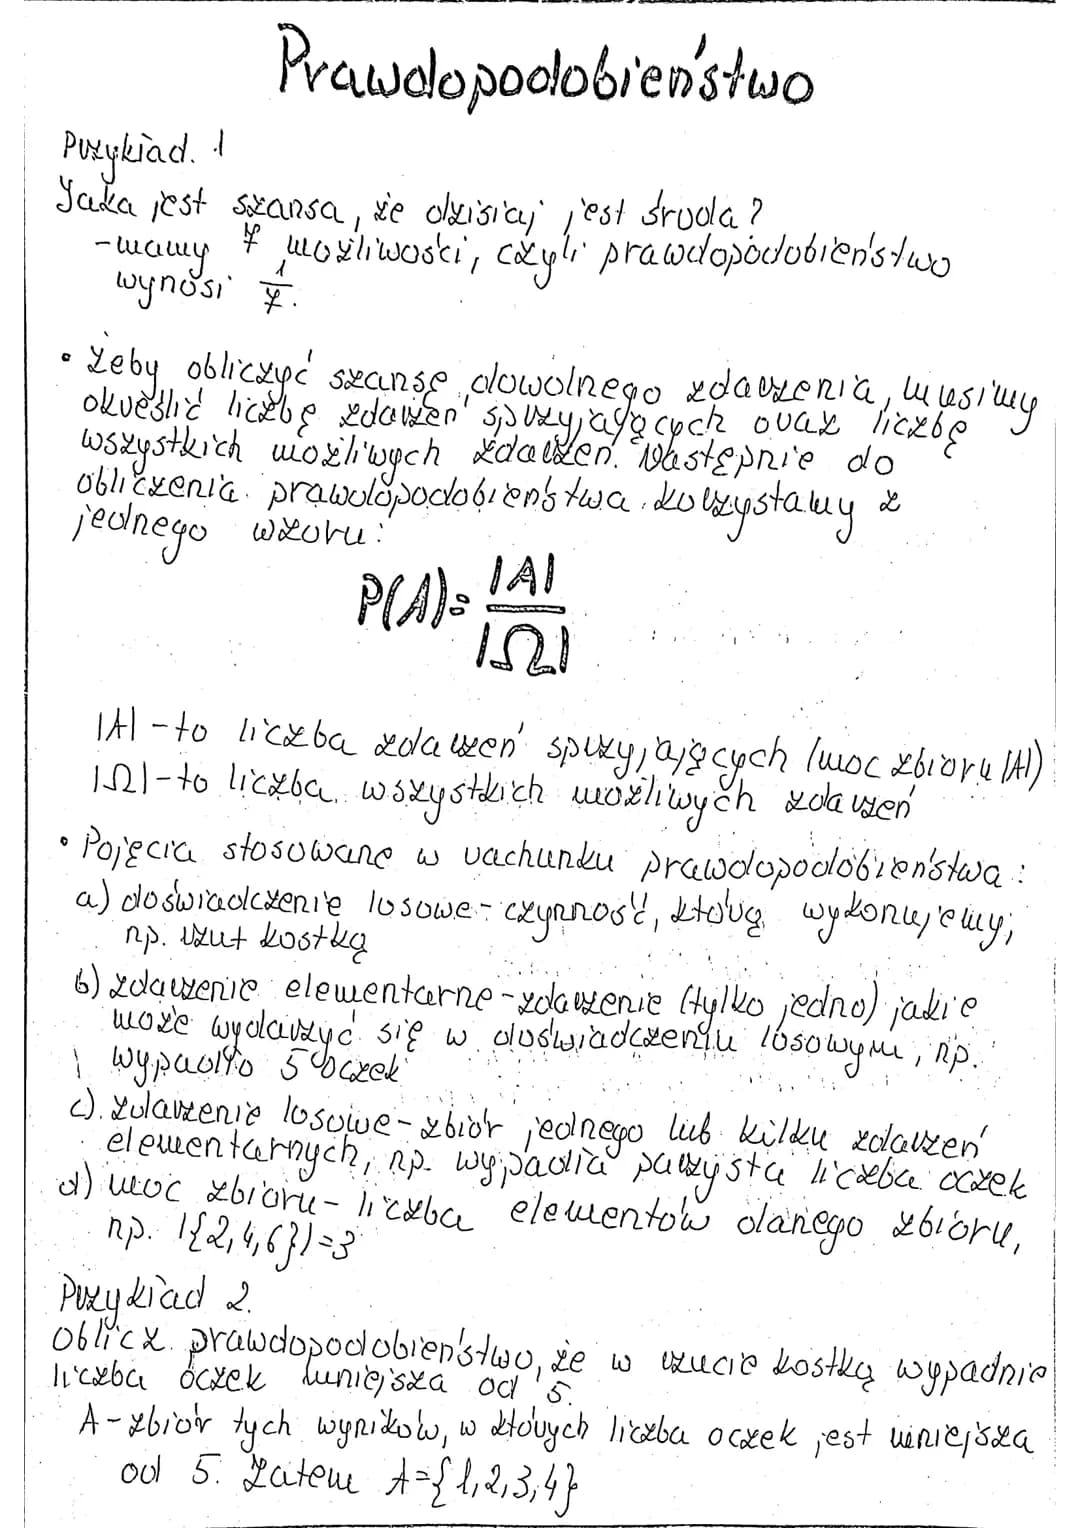 Prawdopodobieństwo
Przykład. 1
Jaka jest szansa, że dzisiaj jest środa?
-mamy 7 możliwości, czyli prawdopodobieństwo
wynosi 1/7.
• Żeby obliczyć szansę dowolnego zdarzenia, musimy
określić liczbę zdarzeń sprzyjających oraz liczbę
wszystkich możliwych zdarzeń. Następnie do
obliczenia prawdopodobieństwa korzystamy z
jednego wzoru:
P(A)=|A|/|Ω|
|A| - to liczba zdarzeń sprzyjających (moc zbioru |A|)
|Ω| - to liczba wszystkich możliwych zdarzeń
• Pojęcia stosowane w rachunku prawdopodobieństwa:
a) doświadczenie losowe - czynność, którą wykonujemy,
np. rzut kostką
b) zdarzenie elementarne - zdarzenie (tylko jedno) jakie
może wydarzyć się w doświadczeniu losowym, np.
wypadło 5 oczek
c). zdarzenie losowe - zbiór jednego lub kilku zdarzeń
elementarnych, np. wypadła parzysta liczba oczek
d) moc zbioru - liczba elementów danego zbioru,
np. |{2,4,6}|=3
Przykład 2.
Oblicz prawdopodobieństwo, że w rzucie kostką wypadnie
liczba oczek mniejsza od 5.
A - zbiór tych wyników, w których liczba oczek jest mniejsza
od 5. Zatem A={1,2,3,4}